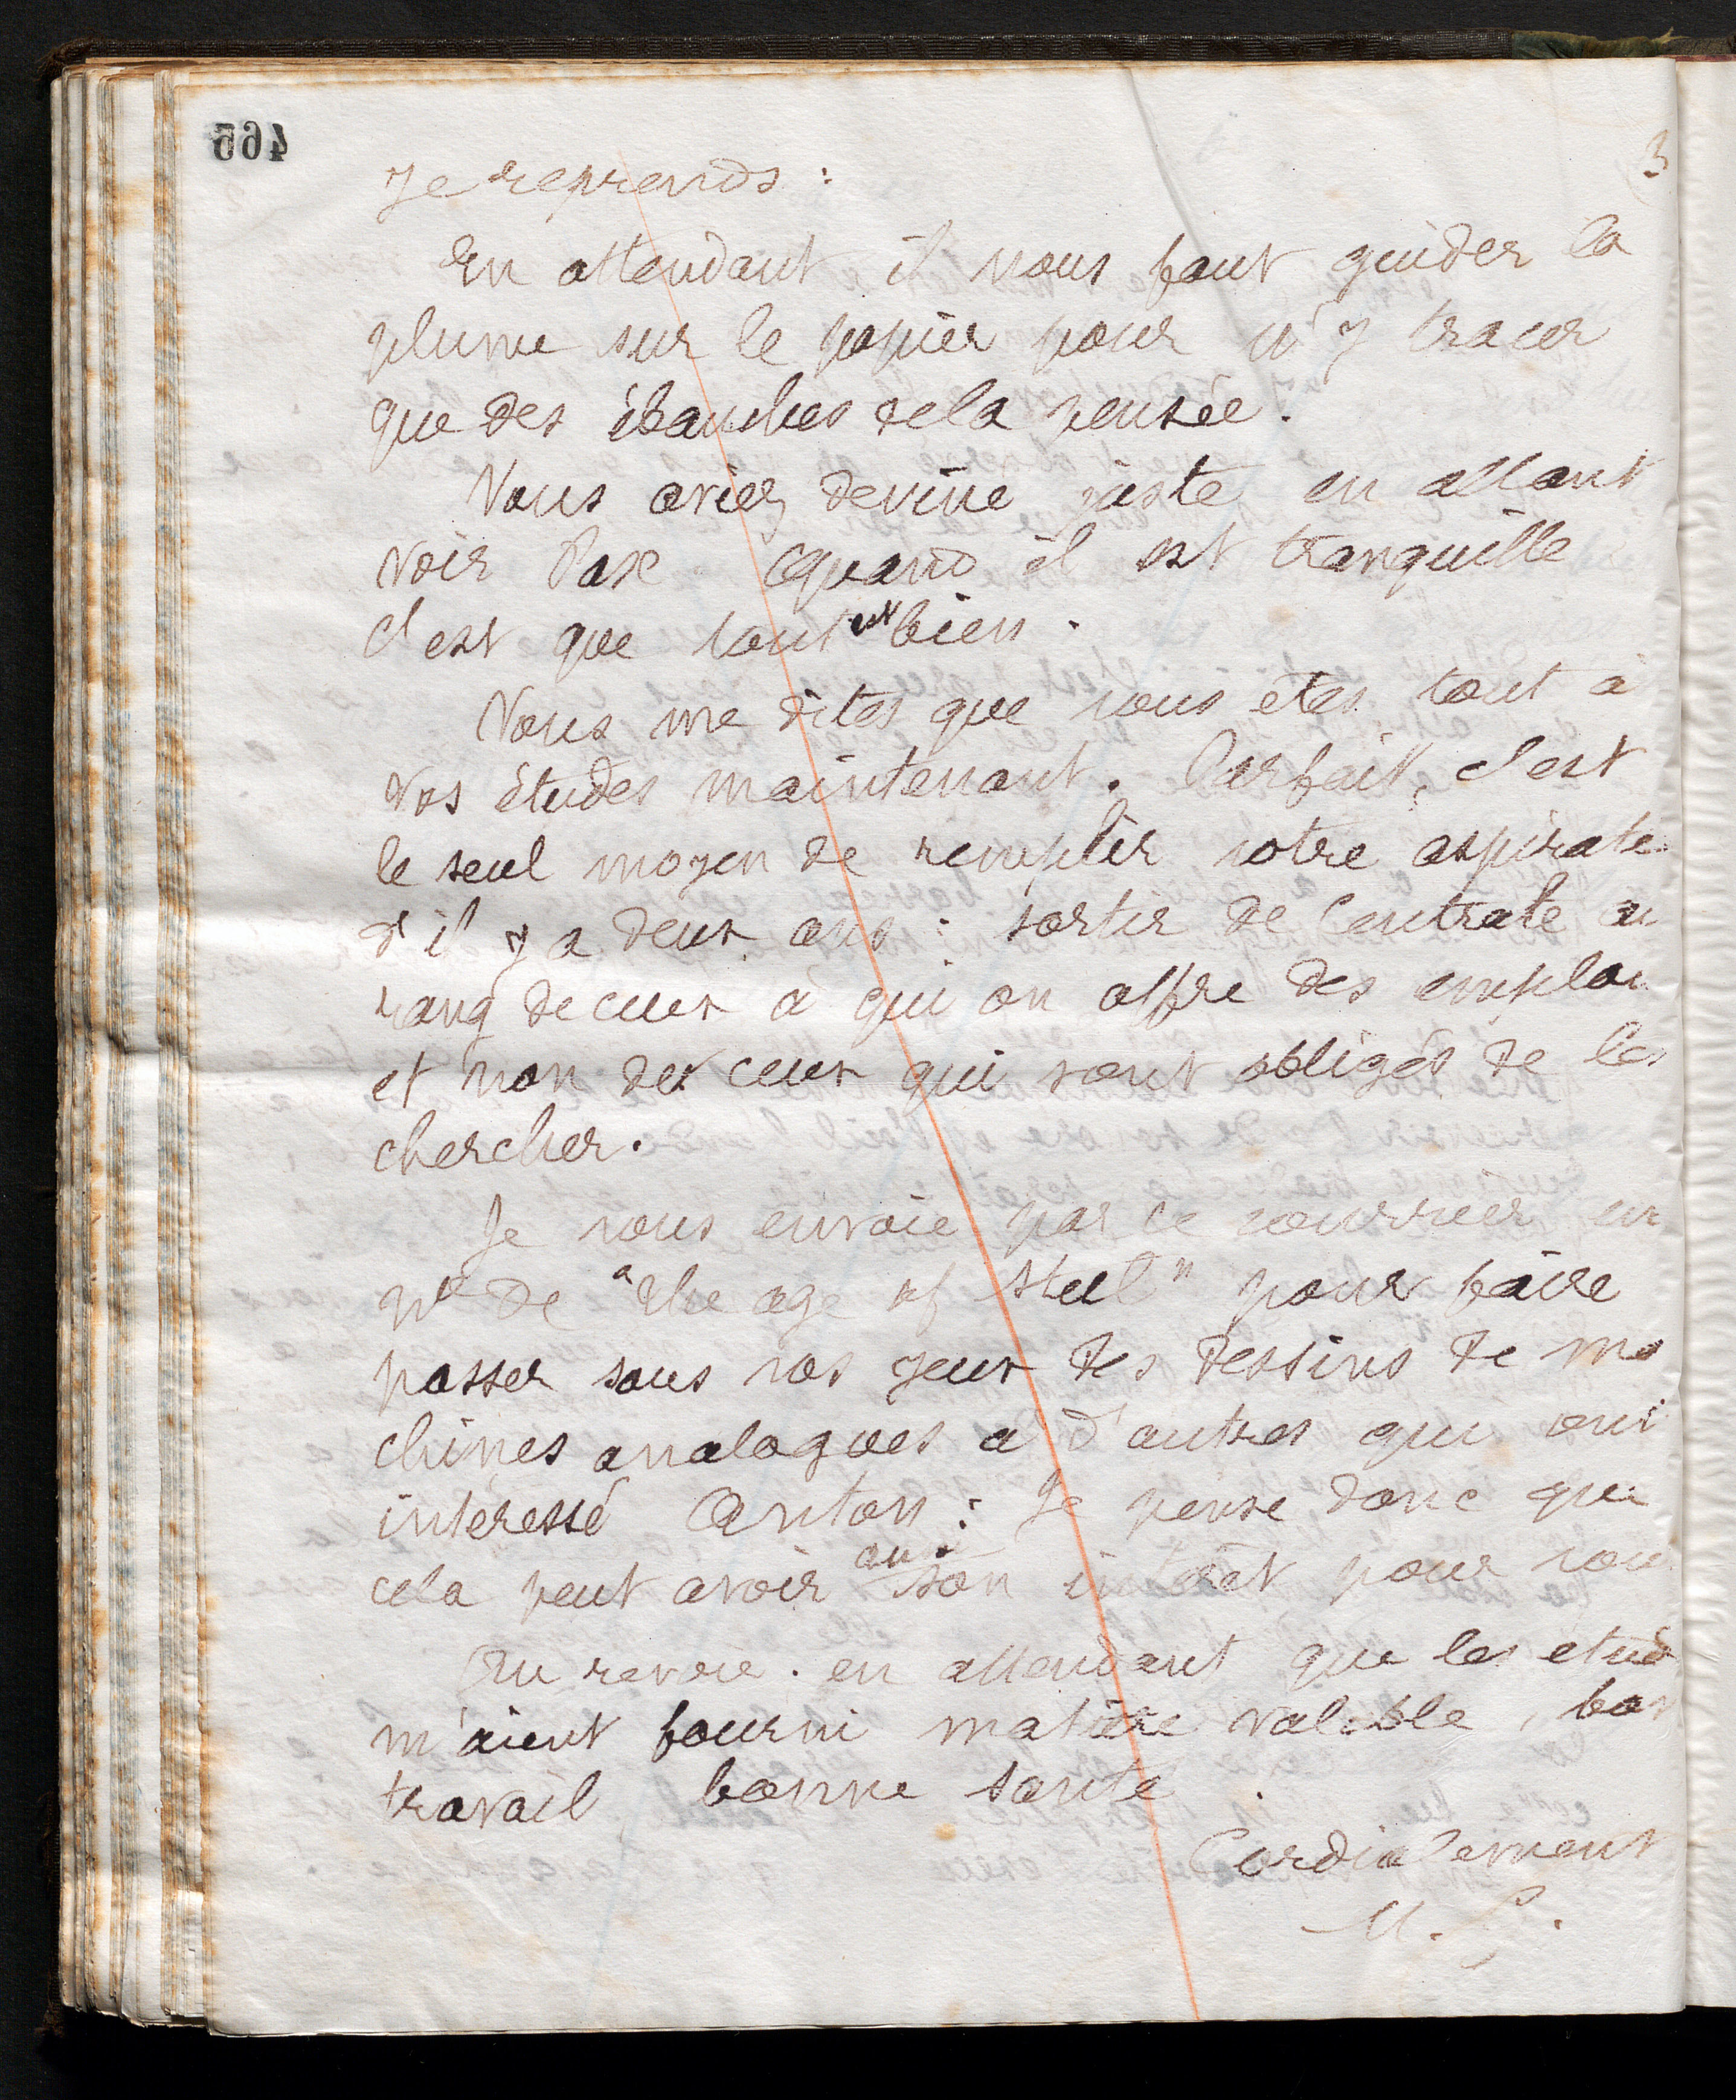 465
3
Je reprends :
En attendant il nous faut guider la
plume sur le papier pour n'y tracer
que des ébauches de la pensée.
Vous aviez deviné juste en allant
voir Pax. Quand il est tranquille
c'est que tout est bien.
Vous me dites que vous etes tout à
vos études maintenant. Parfait, c'est
le seul moyen de remplir votre aspirat
d'il y a deux ans : sortir de Centrale au
rang de ceux à qui on offre des emploi
et non de ceux qui sont obligés de les
chercher.
Je vous envoie par ce courrier un
No de "The age of Steel" pour faire
passer sous vos yeux des dessins de ma
chines analogues a d'autres qui ont
intéressé Anton : Je pense donc que
cela peut avoir aussi son intérêt pour vou
Au revoir. en attendant que les etud
m'aient fourni matière valable, bon
travail bonne santé.
Cordialement